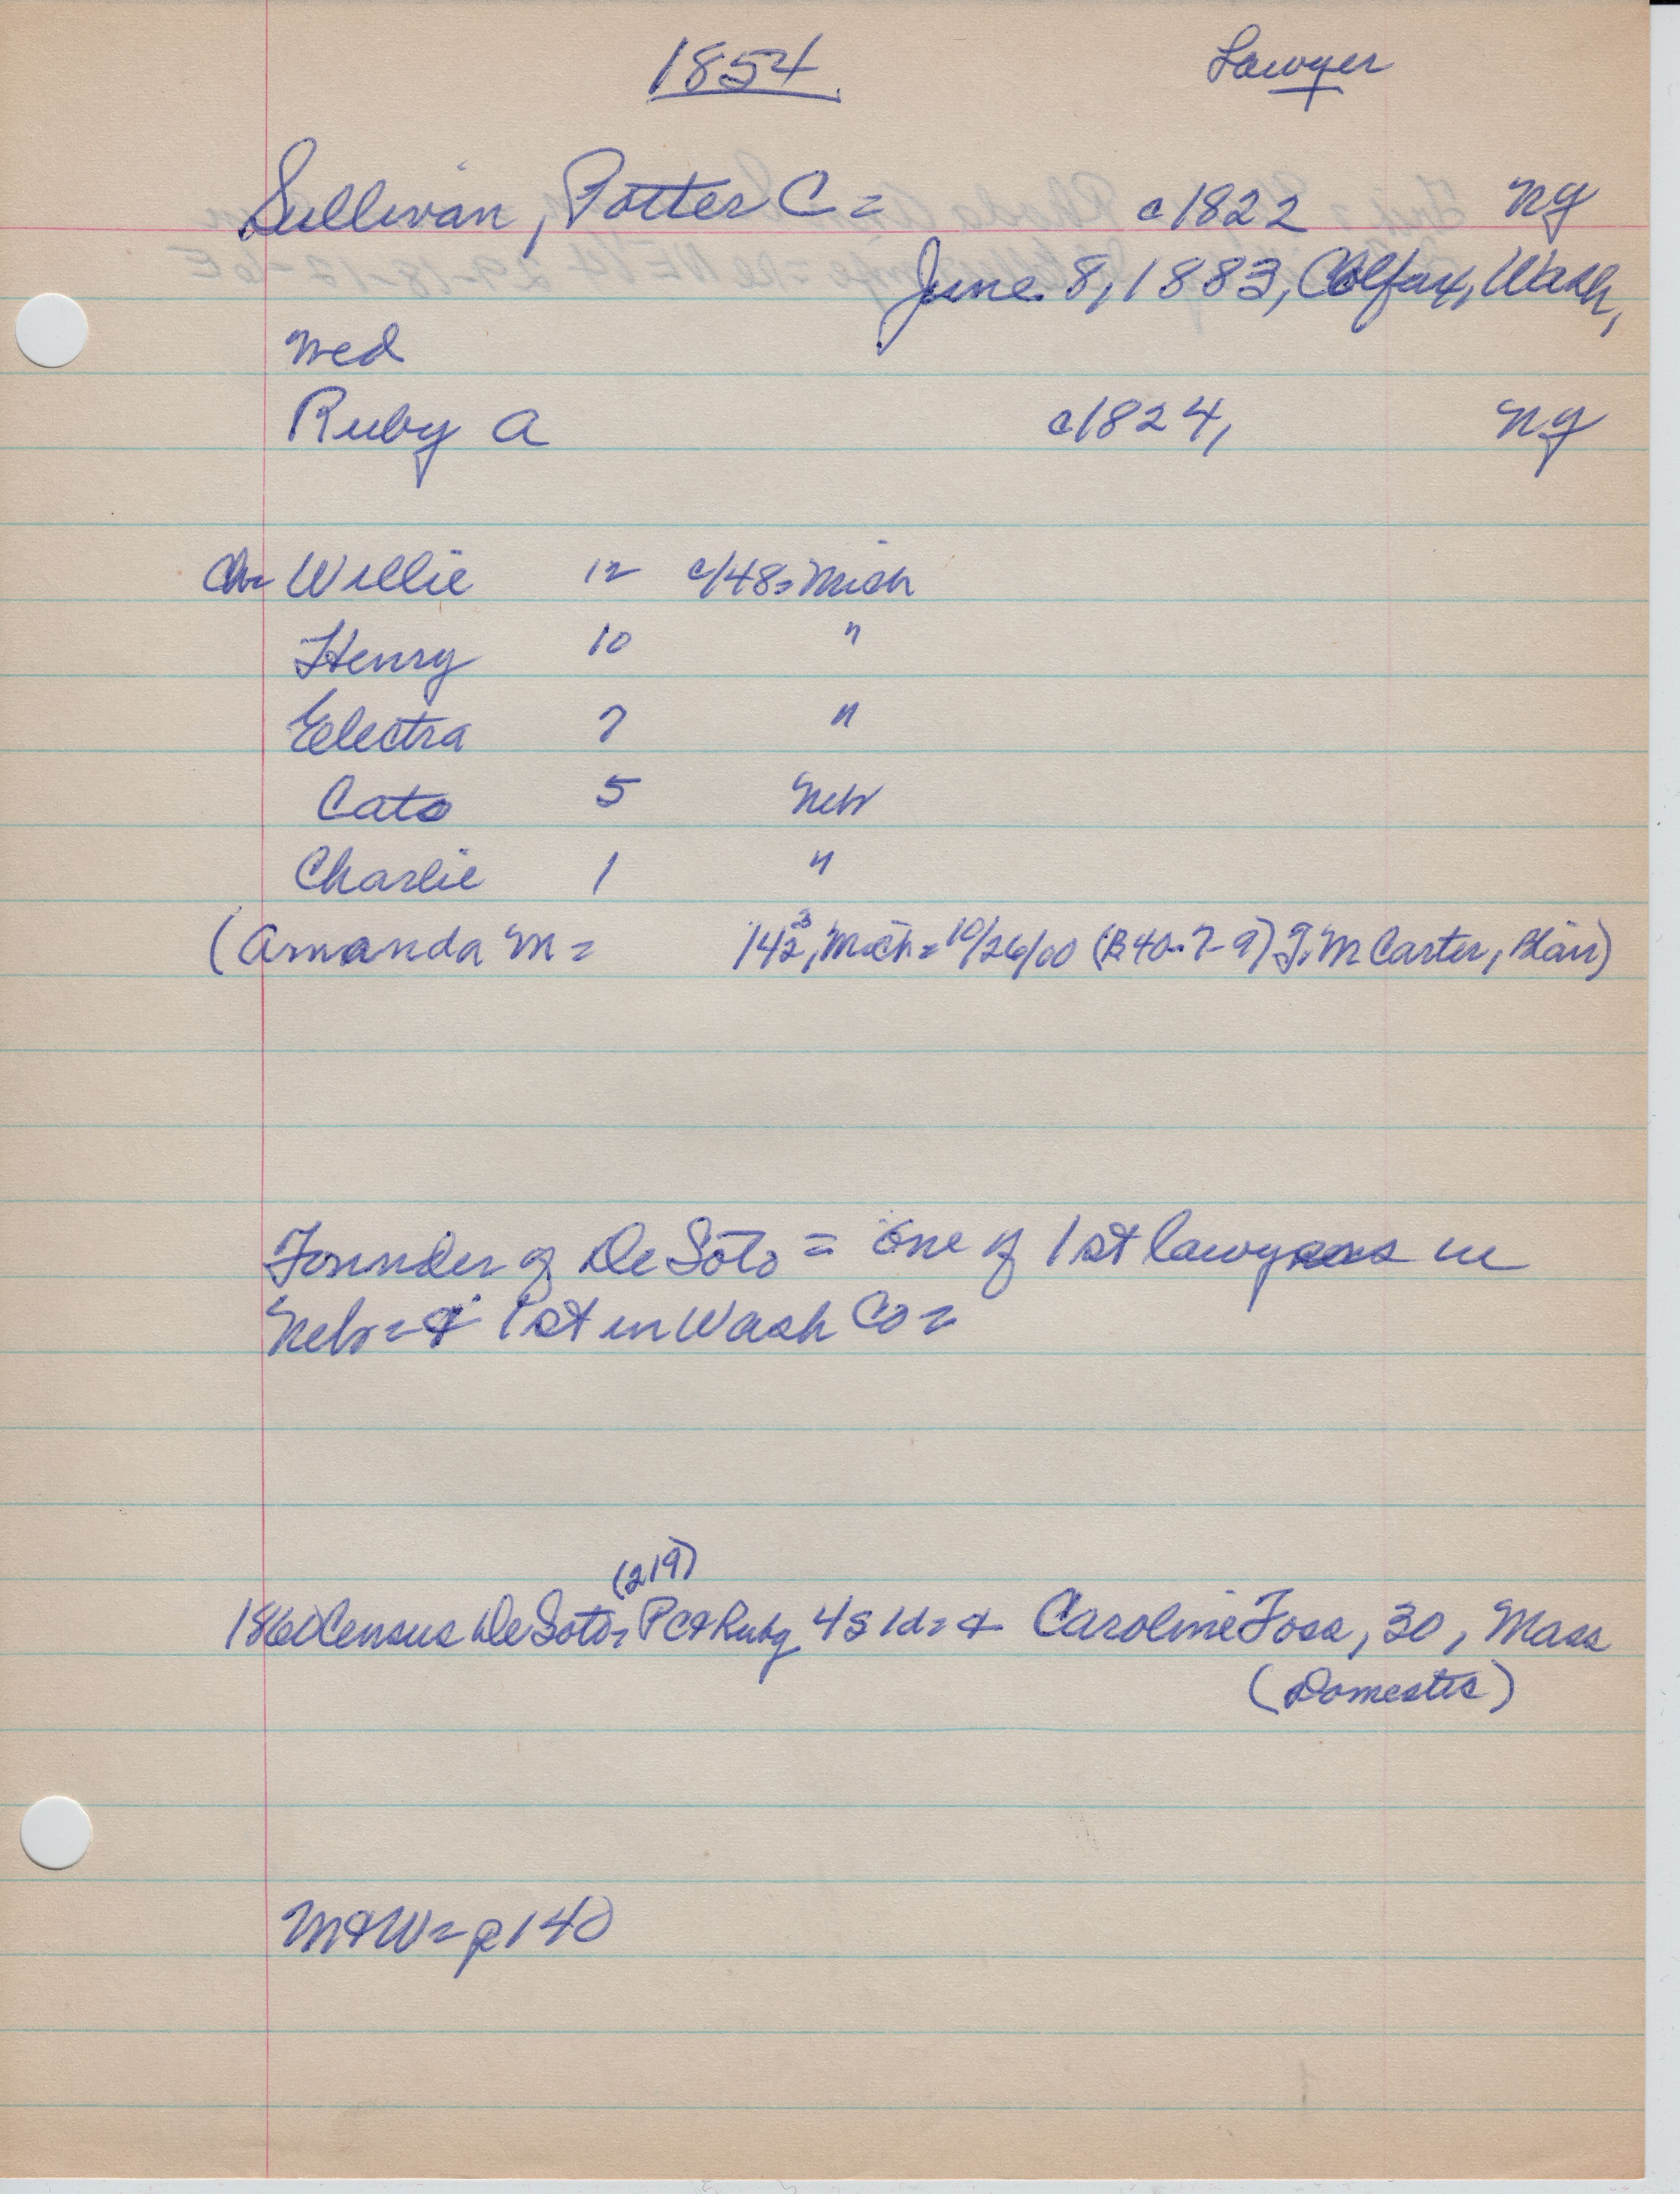 1854 Lawyer
Sullivan, Potter C = c1822 NY
June 8, 1883, Colfax, Wash,
wed
Ruby A c1824, NY
Ch= Willie 12 c/48= Mich
Henry 10 "
Electra 7 "
Cato 5 Nebr
Charlie 1 "
(Amanda M = 142, Mich = 10/26/00 (B40-7-9) J. M Carter, Blair)
Founder of De Soto = One of 1st lawyers in
Nebr = & 1st in Wash Co =
(219)
1860 Census De Soto, PC & Ruby 4S 1d = & Caroline Foss, 30, Mass
(Domestic)
M & W = p 140